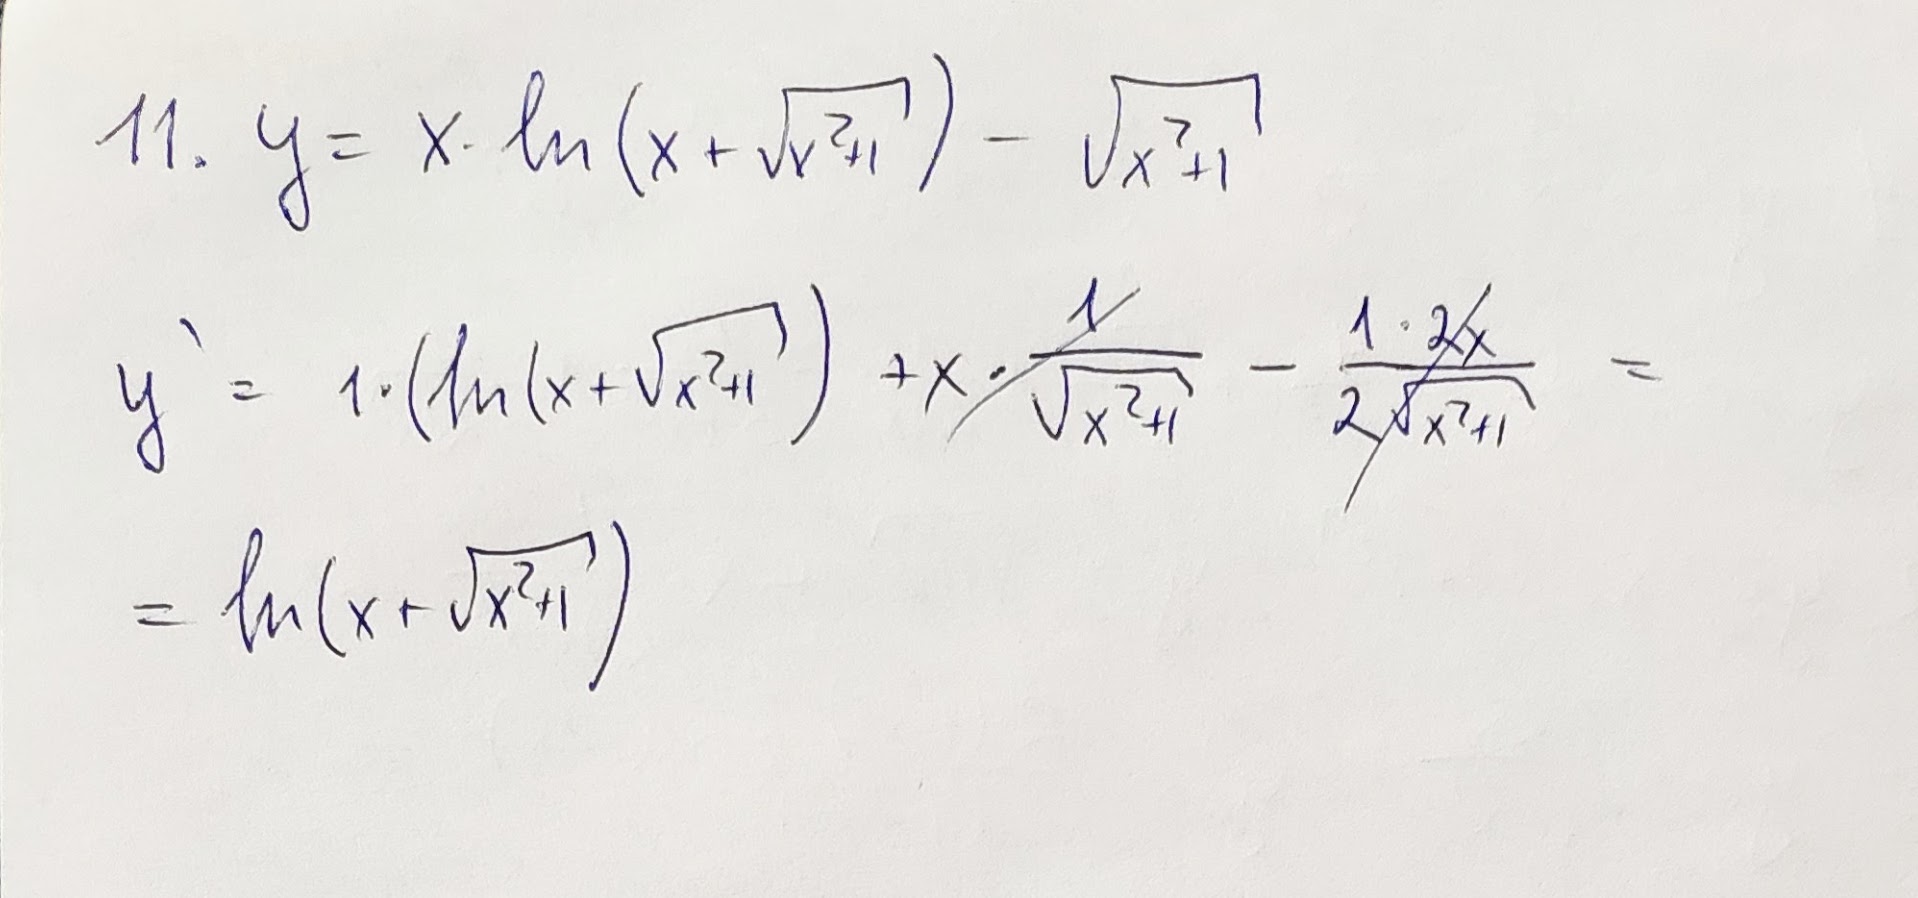 11. y = x · ln(x + √(x²+1)) - √(x²+1)
y` = 1·(ln(x + √(x²+1)) + x · 1/√(x²+1) - (1 · 2x)/(2√(x²+1)) =
= ln(x + √(x²+1))